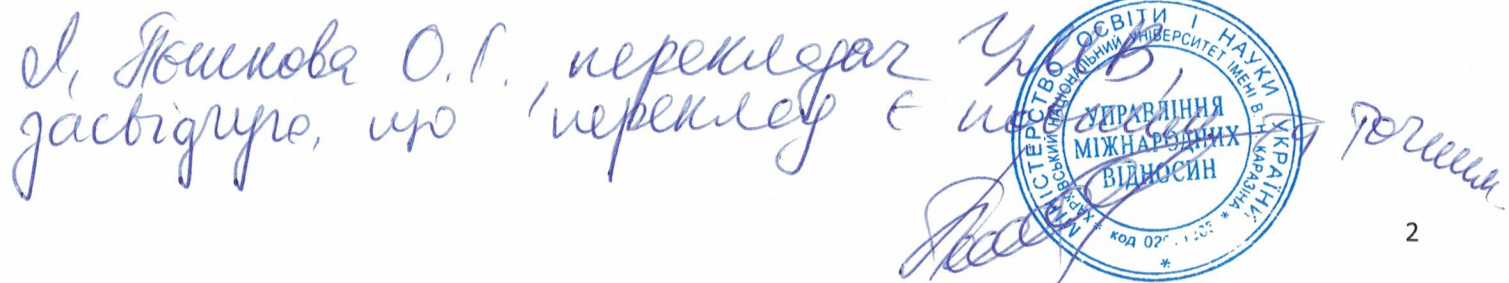 Я, Пошнова О.Г., перекладач УМВ,
засвідчую, що переклад є повним та точним
МІНІСТЕРСТВО ОСВІТИ І НАУКИ УКРАЇНИ
ХАРКІВСЬКИЙ НАЦІОНАЛЬНИЙ УНІВЕРСИТЕТ ІМЕНІ В. Н. КАРАЗІНА
* код
УПРАВЛІННЯ
МІЖНАРОДНИХ
ВІДНОСИН
2